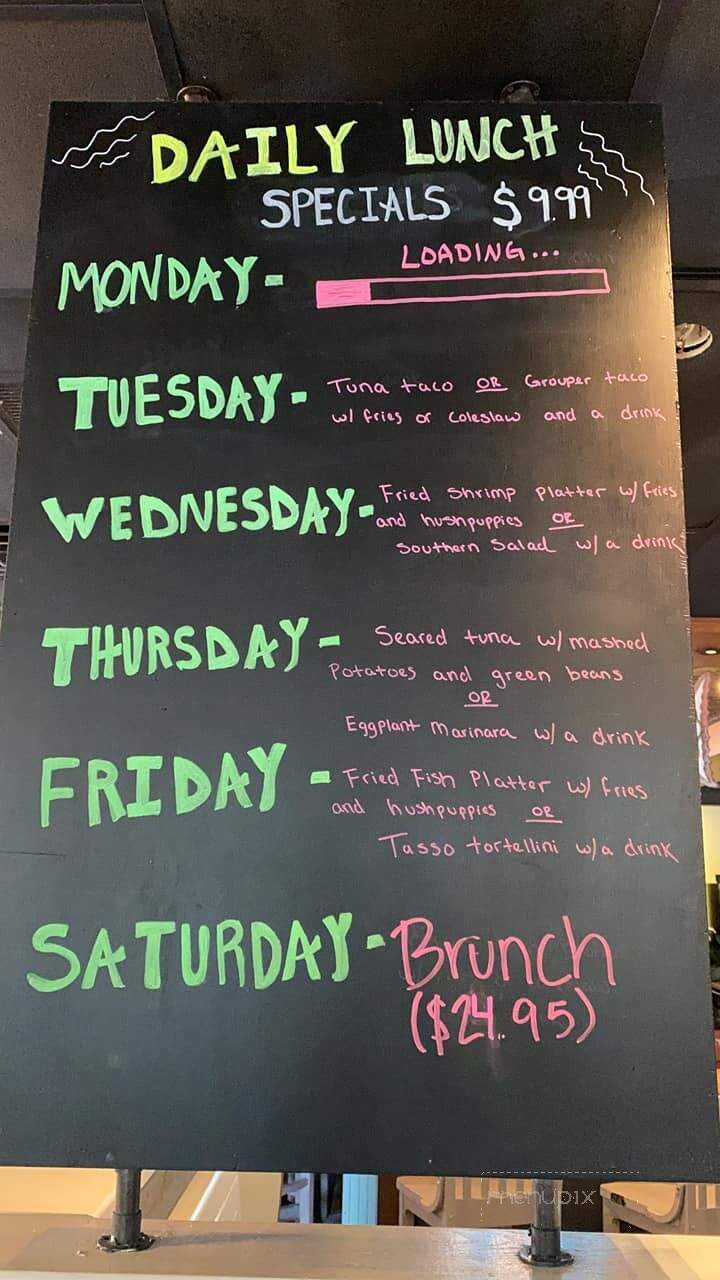 DAILY LUNCH
SPECIALS $9.99
LOADING...
MONDAY-
TUESDAY- Tuna taco OR Grouper taco
w/ fries or coleslaw and a drink
WEDNESDAY- Fried shrimp platter w/ fries
and hushpuppies OR
Southern Salad w/ a drink
THURSDAY- Seared tuna w/ mashed
Potatoes and green beans
OR
Eggplant Marinara w/ a drink
FRIDAY- Fried Fish Platter w/ fries
and hushpuppies OR
Tasso tortellini w/a drink
SATURDAY- Brunch
($24.95)
menupix